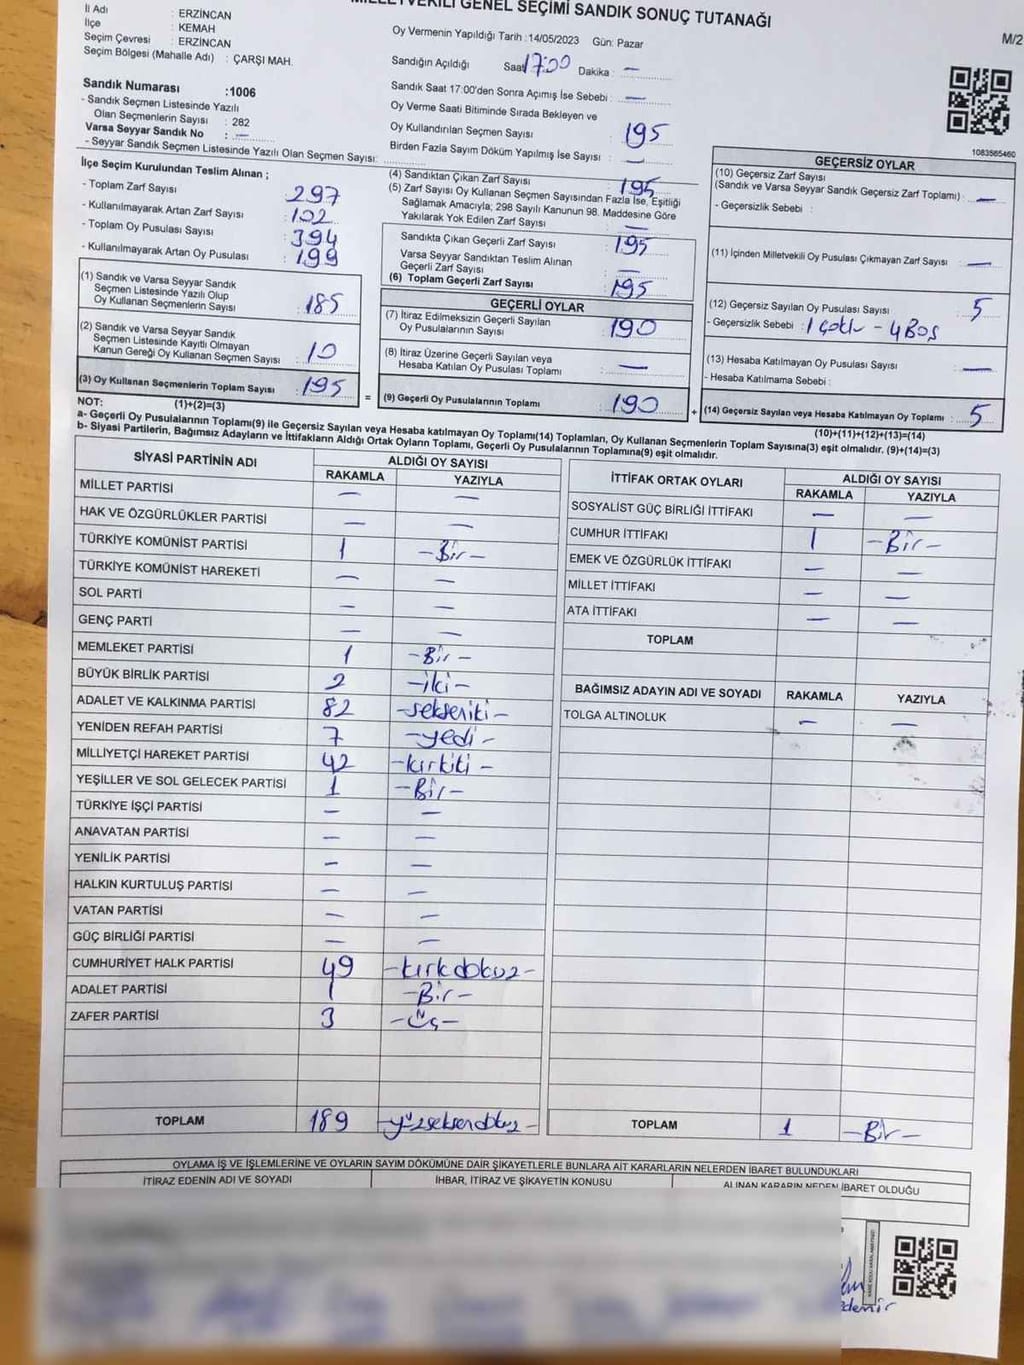 MİLLETVEKİLİ GENEL SEÇİMİ SANDIK SONUÇ TUTANAĞI
M/2
İl Adı : ERZİNCAN
İlçe : KEMAH
Seçim Çevresi : ERZİNCAN
Seçim Bölgesi (Mahalle Adı) : ÇARŞI MAH.
Sandık Numarası :1006
- Sandık Seçmen Listesinde Yazılı
Olan Seçmenlerin Sayısı : 282
Varsa Seyyar Sandık No : —
- Seyyar Sandık Seçmen Listesinde Yazılı Olan Seçmen Sayısı:
Oy Vermenin Yapıldığı Tarih :14/05/2023 Gün: Pazar
Sandığın Açıldığı Saat 17:00 Dakika : —
Sandık Saat 17:00'den Sonra Açımış İse Sebebi : —
Oy Verme Saati Bitiminde Sırada Bekleyen ve
Oy Kullandırılan Seçmen Sayısı : 195
Birden Fazla Sayım Döküm Yapılmış İse Sayısı : —
1083565460
İlçe Seçim Kurulundan Teslim Alınan ;
- Toplam Zarf Sayısı : 297
- Kullanılmayarak Artan Zarf Sayısı : 102
- Toplam Oy Pusulası Sayısı : 394
- Kullanılmayarak Artan Oy Pusulası : 199
(1) Sandık ve Varsa Seyyar Sandık
Seçmen Listesinde Yazılı Olup
Oy Kullanan Seçmenlerin Sayısı : 185
(2) Sandık ve Varsa Seyyar Sandık
Seçmen Listesinde Kayıtlı Olmayan
Kanun Gereği Oy Kullanan Seçmen Sayısı : 10
(3) Oy Kullanan Seçmenlerin Toplam Sayısı : 195
(1)+(2)=(3)
(4) Sandıktan Çıkan Zarf Sayısı : 195
(5) Zarf Sayısı Oy Kullanan Seçmen Sayısından Fazla İse, Eşitliği
Sağlamak Amacıyla; 298 Sayılı Kanunun 98. Maddesine Göre
Yakılarak Yok Edilen Zarf Sayısı : —
Sandıkta Çıkan Geçerli Zarf Sayısı : 195
Varsa Seyyar Sandıktan Teslim Alınan
Geçerli Zarf Sayısı : —
(6) Toplam Geçerli Zarf Sayısı : 195
GEÇERLİ OYLAR
(7) İtiraz Edilmeksizin Geçerli Sayılan
Oy Pusulalarının Sayısı : 190
(8) İtiraz Üzerine Geçerli Sayılan veya
Hesaba Katılan Oy Pusulası Toplamı : —
= (9) Geçerli Oy Pusulalarının Toplamı : 190 +
GEÇERSİZ OYLAR
(10) Geçersiz Zarf Sayısı
(Sandık ve Varsa Seyyar Sandık Geçersiz Zarf Toplamı) : —
- Geçersizlik Sebebi :
(11) İçinden Milletvekili Oy Pusulası Çıkmayan Zarf Sayısı : —
(12) Geçersiz Sayılan Oy Pusulası Sayısı : 5
- Geçersizlik Sebebi : 1 çoklu - 4 Boş
(13) Hesaba Katılmayan Oy Pusulası Sayısı : —
- Hesaba Katılmama Sebebi :
(14) Geçersiz Sayılan veya Hesaba Katılmayan Oy Toplamı : 5
(10)+(11)+(12)+(13)=(14)
NOT:
a- Geçerli Oy Pusulalarının Toplamı(9) ile Geçersiz Sayılan veya Hesaba katılmayan Oy Toplamı(14) Toplamları, Oy Kullanan Seçmenlerin Toplam Sayısına(3) eşit olmalıdır. (9)+(14)=(3)
b- Siyasi Partilerin, Bağımsız Adayların ve İttifakların Aldığı Ortak Oyların Toplamı, Geçerli Oy Pusulalarının Toplamına(9) eşit olmalıdır.
SİYASİ PARTİNİN ADI ALDIĞI OY SAYISI
RAKAMLA YAZIYLA
MİLLET PARTİSİ — —
HAK VE ÖZGÜRLÜKLER PARTİSİ — —
TÜRKİYE KOMÜNİST PARTİSİ 1 -Bir-
TÜRKİYE KOMÜNİST HAREKETİ — —
SOL PARTİ — —
GENÇ PARTİ — —
MEMLEKET PARTİSİ 1 -Bir-
BÜYÜK BİRLİK PARTİSİ 2 -iki-
ADALET VE KALKINMA PARTİSİ 82 -sekseniki-
YENİDEN REFAH PARTİSİ 7 -yedi-
MİLLİYETÇİ HAREKET PARTİSİ 42 -kırkiki-
YEŞİLLER VE SOL GELECEK PARTİSİ 1 -Bir-
TÜRKİYE İŞÇİ PARTİSİ — —
ANAVATAN PARTİSİ — —
YENİLİK PARTİSİ — —
HALKIN KURTULUŞ PARTİSİ — —
VATAN PARTİSİ — —
GÜÇ BİRLİĞİ PARTİSİ — —
CUMHURİYET HALK PARTİSİ 49 -kırkdokuz-
ADALET PARTİSİ 1 -Bir-
ZAFER PARTİSİ 3 -Üç-
TOPLAM 189 -yüzseksendokuz-
İTTİFAK ORTAK OYLARI ALDIĞI OY SAYISI
RAKAMLA YAZIYLA
SOSYALİST GÜÇ BİRLİĞİ İTTİFAKI — —
CUMHUR İTTİFAKI 1 -Bir-
EMEK VE ÖZGÜRLÜK İTTİFAKI — —
MİLLET İTTİFAKI — —
ATA İTTİFAKI — —
TOPLAM
BAĞIMSIZ ADAYIN ADI VE SOYADI RAKAMLA YAZIYLA
TOLGA ALTINOLUK — —
TOPLAM 1 -Bir-
OYLAMA İŞ VE İŞLEMLERİNE VE OYLARIN SAYIM DÖKÜMÜNE DAİR ŞİKAYETLERLE BUNLARA AİT KARARLARIN NELERDEN İBARET BULUNDUKLARI
İTİRAZ EDENİN ADI VE SOYADI İHBAR, İTİRAZ VE ŞİKAYETİN KONUSU ALINAN KARARIN NEDEN İBARET OLDUĞU